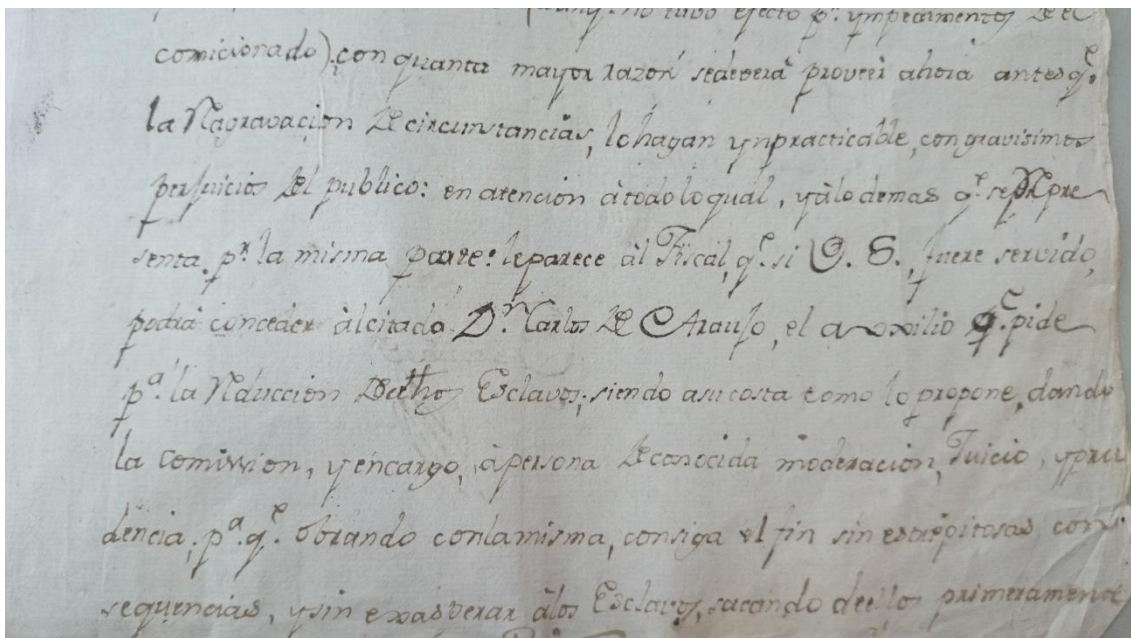 no tubo efecto pr. ympedimentos de el
comicionado); con quanta mayor razon sedeverá proveer ahora antes qe.
la Ragravacion de circunstancias, lo hagan ynpracticable, con gravisimos
perjuicios del publico: en atencion átodo loqual, yálo demas qe. se Repre
senta, pr. la misma parte: leparece ál Fiscal, qe. si V. S., fuere servido,
podrá conceder álcitado Dn. Carlos de Araujo, el auxilio qe. pide
pa. la Reduccion dedhos Esclavos, siendo asu costa como lo propone, dando
la Comission, y encargo, ápersona de conocida moderacion, Juicio, ypru
dencia, pa. qe. obrando conlamisma, consiga el fin sin estrepitosas con
sequencias, ysin exasperar álos Esclavos, sacando deellos primeramente